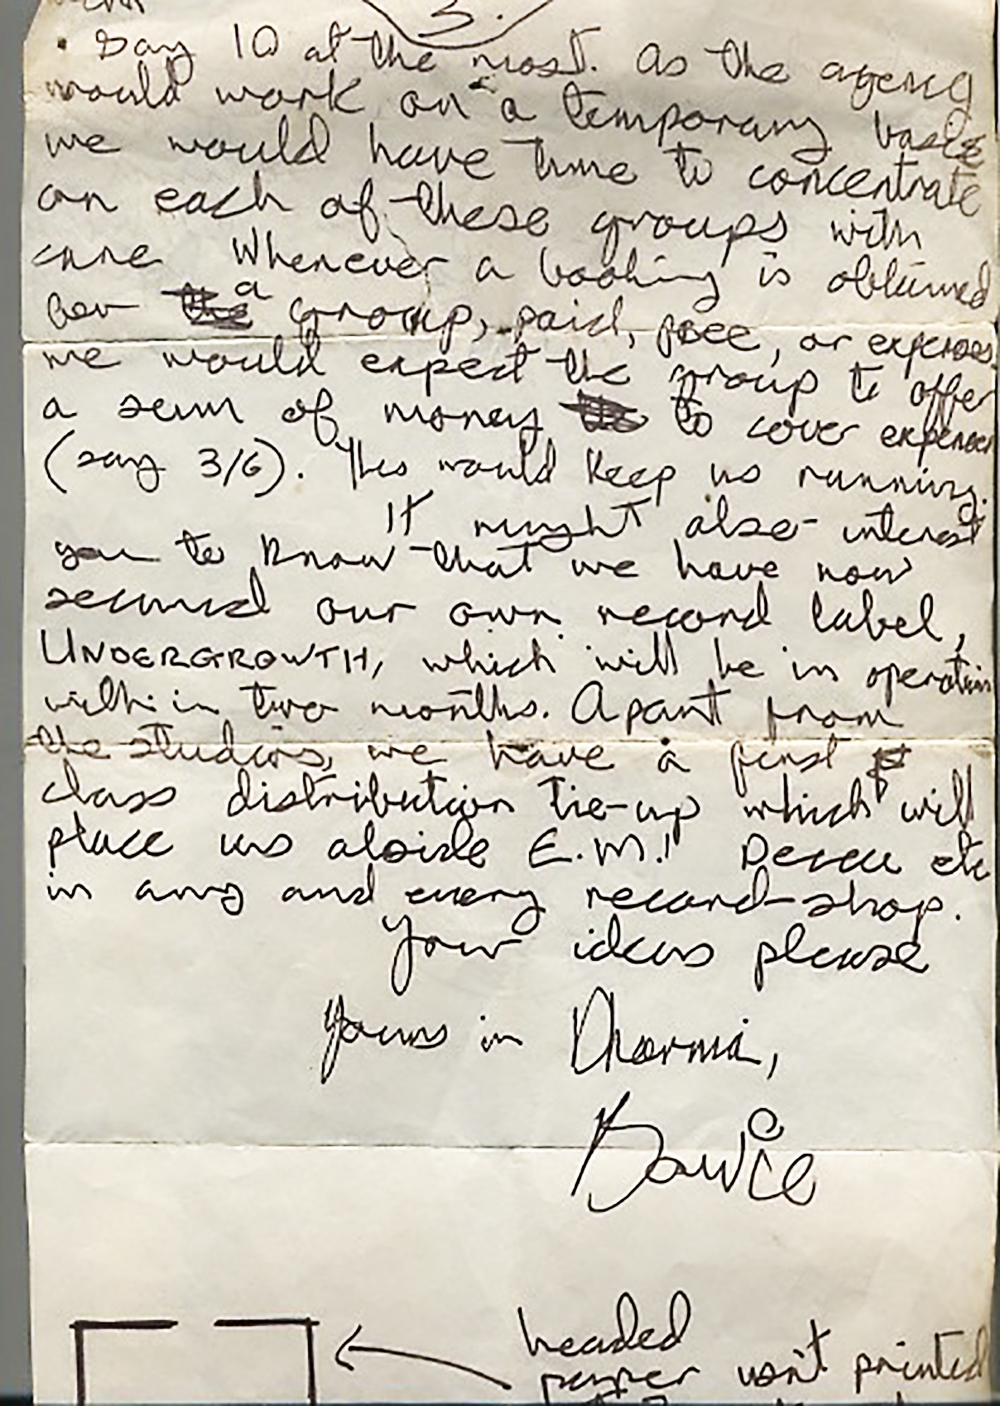 3.
Say 10 at the most. As the agency
would work on a temporary basis
we would have time to concentrate
on each of these groups with
care Whenever a booking is obtained
for a group, paid, free, or expenses
we would expect the group to offer
a sum of money to cover expenses
(say 3/6). This would keep us running.
It might also interest
you to know that we have now
secured our own record label,
UNDERGROWTH, which will be in operation
within two months. Apart from
the studios, we have a first
class distribution tie-up which will
place us aloide E.M.I Decca etc
in any and every record-shop.
Your ideas please
Yours in Dharma,
Bowie
headed
paper isn't printed